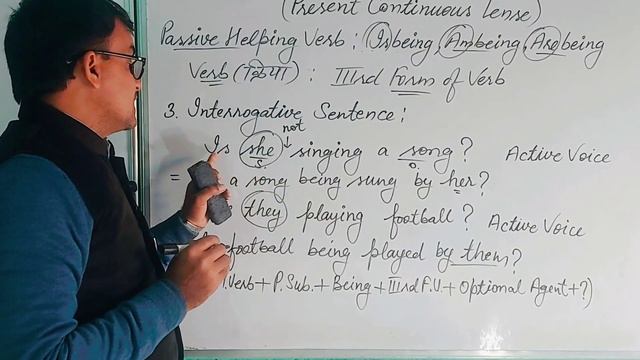 (Present Continuous Tense)
Passive Helping Verb : Is being, Am being, Are being
Verb (क्रिया) : IIIrd Form of Verb
3. Interrogative Sentence :
not
Is she singing a song? Active Voice
S. O.
= a song being sung by her?
they playing football? Active Voice
football being played by them?
Verb + P. Sub. + Being + IIIrd F.V. + Optional Agent + ?)